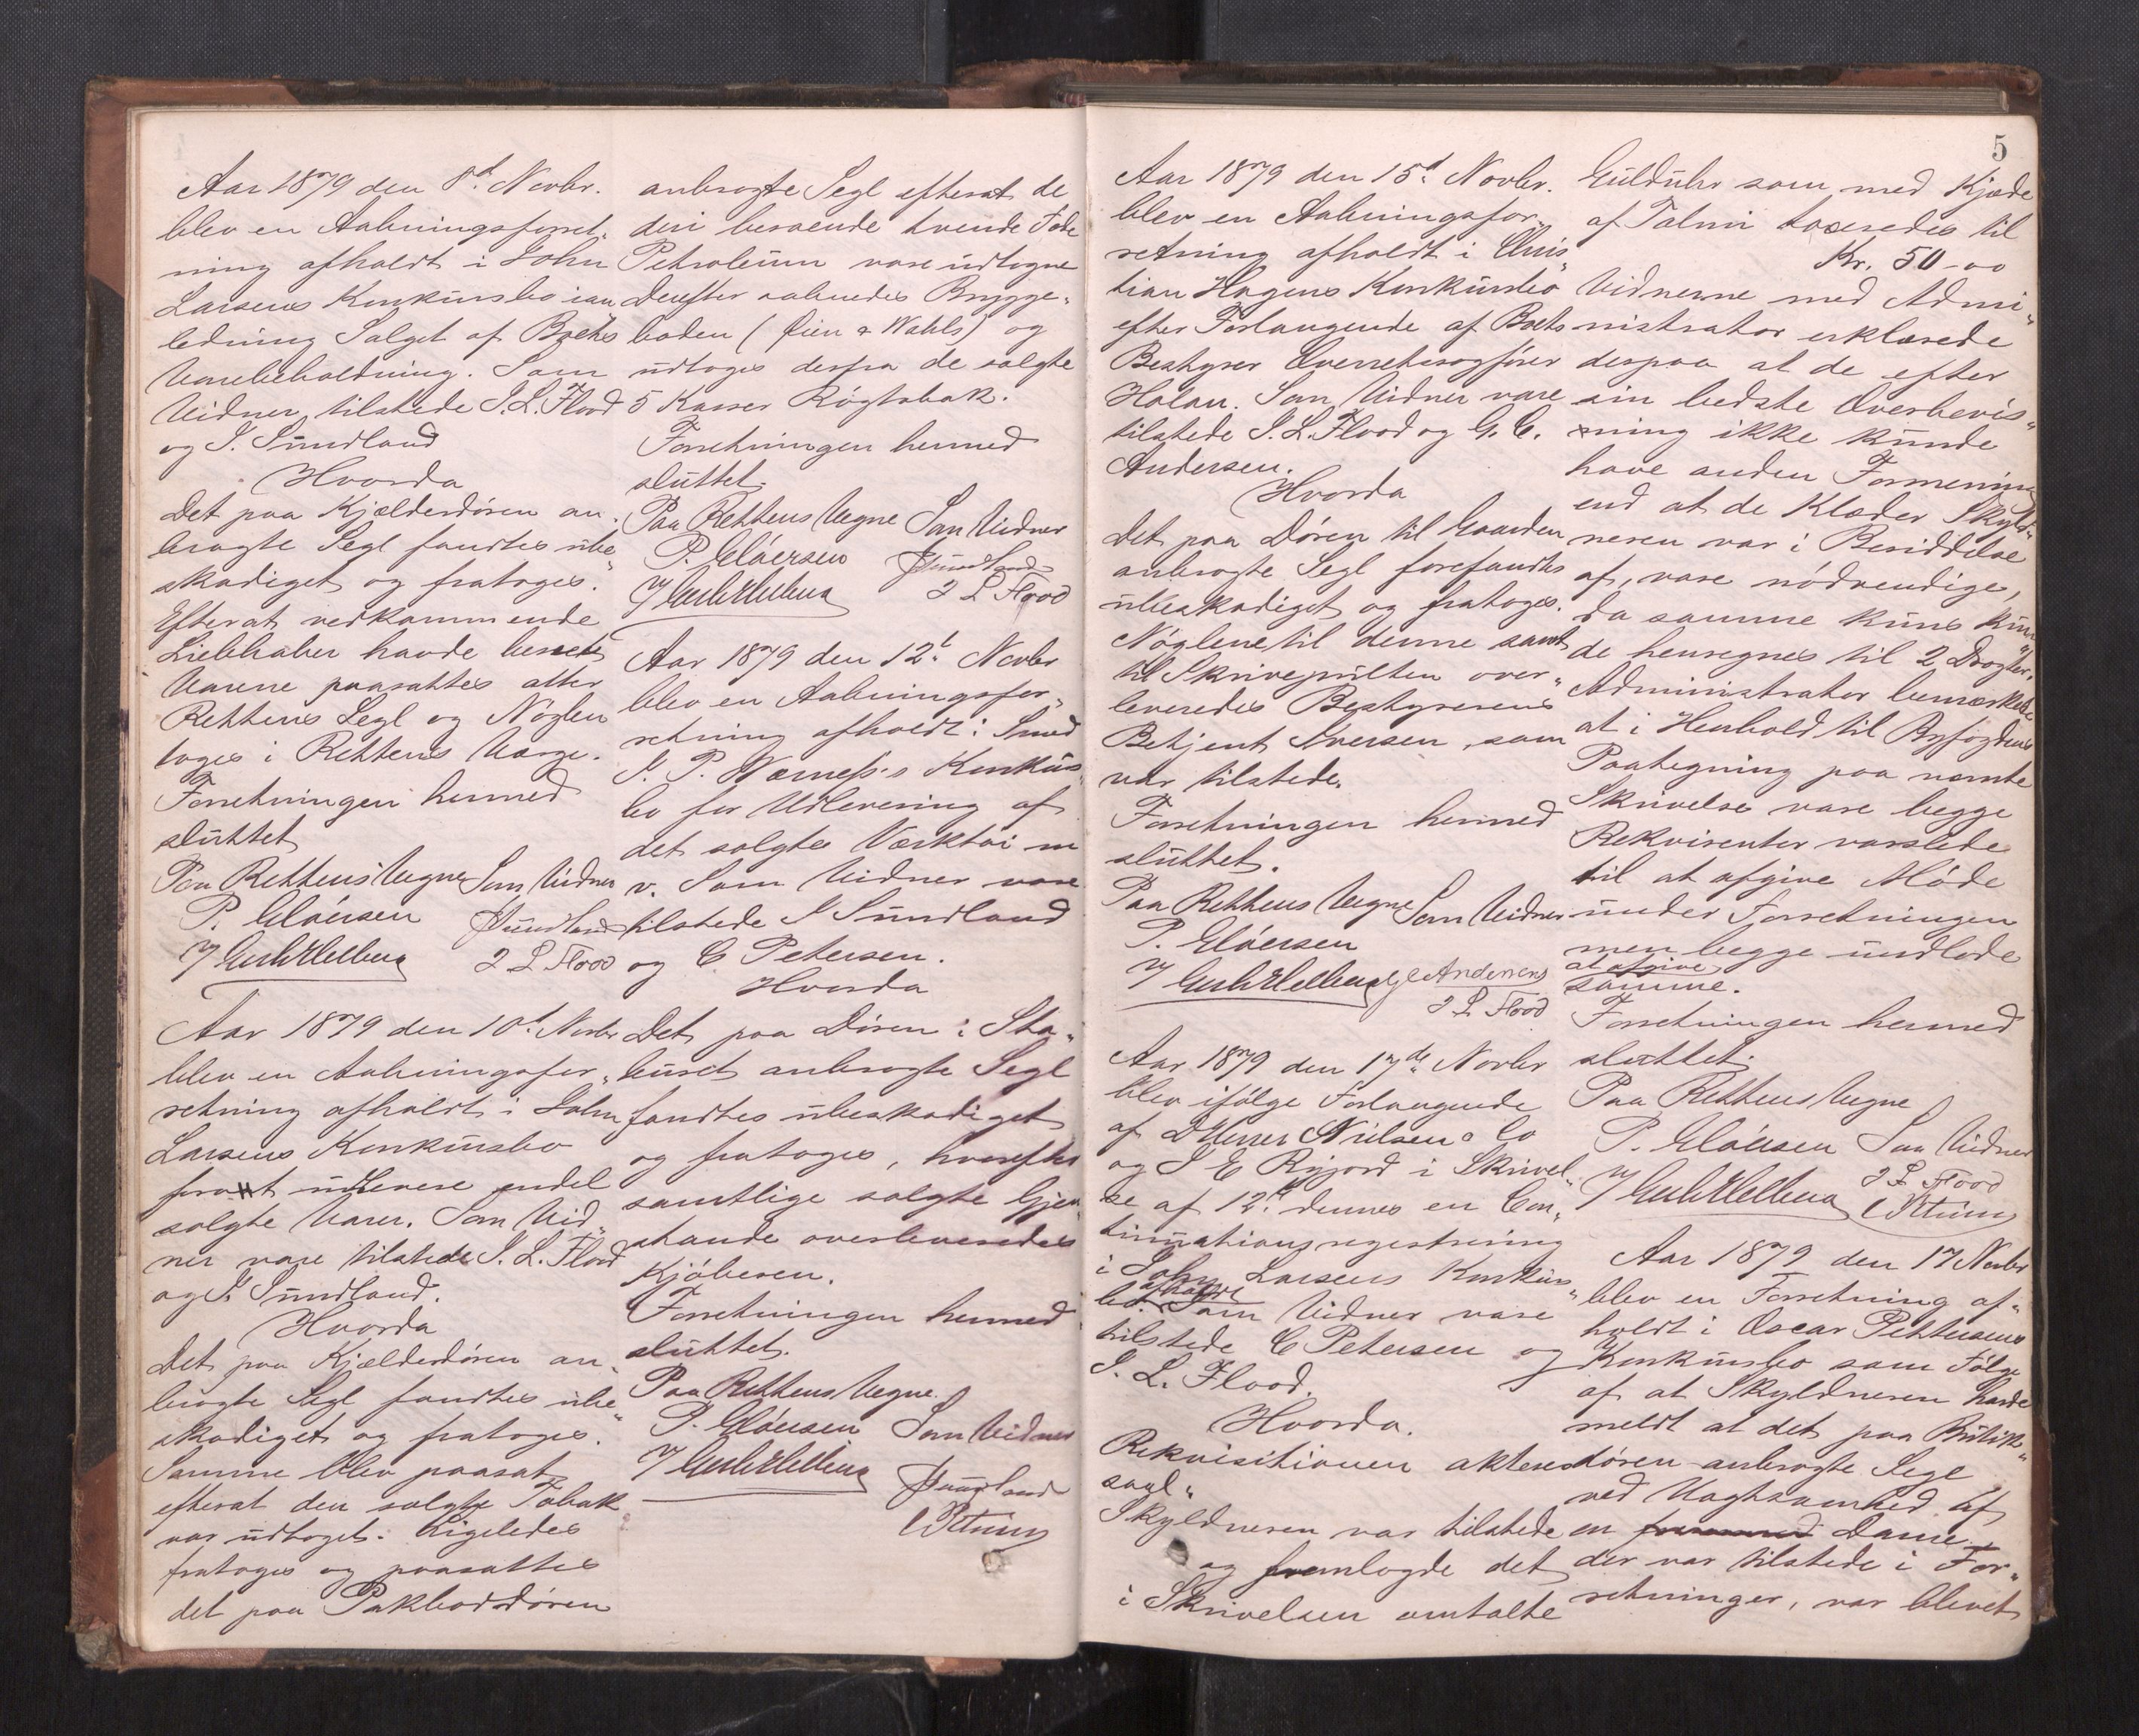 Aar 1879 den 8d. Novbr.
blev en Aabningsforret„
ning afholdt i John
Larsens Konkursbo i an
ledning Salget af Boets
Varebeholdning. Som
Vidner tilstede J. L. Flood
og J. Sundland
Hvorda
Det paa Kjælderdören an„
bragte Segl fandtes ube„
skadiget og fratoges.
Efterat vedkommende
Liebhaber havde beseet
Varene paasattes atter
Rettens Segl og Nöglen
toges i Rettens Værge.
Forretningen hermed
sluttet
Paa Rettens Vegne Som Vidner
P. Clöersen JSundland
J L Flood
Aar 1879 den 10d. Novbr
blev en Aabningsfor„
retning afholdt i John
Larsens Konkursbo
forat udlevere endel
solgte Varer. Som Vid„
ner vare tilstede J. L. Flood
og J. Sundland.
Hvorda
Det paa Kjælderdören an„
bragte Segl fandtes ube„
skadiget og fratoges.
Samme blev paasat
efterat den solgte Tobak
var udtaget. Ligeledes
fratoges og paasattes
det paa Pakboddören
anbragte Segl efterat de
deri beroende tvende Fade
Petroleum vare udtagne
Derefter aabnedes Brygge„
boden (Öien & Wahls) og
udtoges derfra de solgte
5 Kasser Rögtobak.
Forretningen hermed
sluttet.
Paa Rettens Vegne Som Vidner
P. Clöersen JSundland
J L Flood
Aar 1879 den 12d. Novbr
blev en Aabningsfor„
retning afholdt i Smed
J. P. Wærness's Konkurs„
bo for Udlevering af
det solgte Værktöi m
v. Som Vidner vare
tilstede J Sundland
og C Petersen.
Hvorda
Det paa Dören i Sta„
buret anbragte Segl
fandtes ubeskadiget
og fratoges, hvorefter
samtlige solgte Gjen„
stande overleveredes
Kjöberen.
Forretningen hermed
sluttet.
Paa Rettens Vegne
P. Clöersen Som Vidner
JSundland
CPetersen
5
Aar 1879 den 15d. Novbr.
blev en Aabningsfor„
retning afholdt i Chris„
tian Hagens Konkursbo
efter Forlangende af Boets
Bestyrer Overretssagförer
Halan. Som Vidner vare
tilstede J. L. Flood og G. C.
Andersen.
Hvorda
Det paa Dören til Gaarden
anbragte Segl forefandtes
ubeskadiget og fratoges.
Nöglene til denne samt
til Skrivepulten over„
leveredes Bestyrerens
Betjent Iversen, som
var tilstede.
Forretningen hermed
sluttet.
Paa Rettens Vegne Som Vidner
P. Clöersen
G C Andersen
J L Flood
Aar 1879 den 17de Novbr
blev ifölge Forlangende
af DHerrer Nielsen & Co
og J E Ryjord i Skrivel„
se af 12d. dennes en Con„
tinuationsregistrering
i John Larsens Konkurs„
bo afholdt. Som Vidner vare
tilstede C Petersen og
J. L. Flood.
Hvorda.
Rekvisitionen akteres
saal„
Skyldneren var tilstede
og fremlagde det
i Skrivelsen omtalte
Guldubr som med Kjæde
af Talmi taxeredes til
Kr. 50-00
Vidnerne med Admi„
nistrator erklærede
derpaa at de efter
sin bedste Overbevis„
ning ikke kunde
have anden Formening
end at de Klæder Skyld„
neren var i Besiddelse
af, vare nödvendige,
da samme kuns kun„
de henregnes til 2 Dragter.
Administrator bemærkede
at i Henhold til Byfogdens
Paategning paa nævnte
Skrivelse vare begge
Rekvirenter varslede
til at afgive Möde
under Forretningen
men begge undlode
at afgive
samme.
Forretningen hermed
sluttet.
Paa Rettens Vegne
P. Clöersen Som Vidner
J L Flood
CPetersen
Aar 1879 den 17 Novbr
blev en Forretning af„
holdt i Oscar Pettersens
Konkursbo som Fölge
af at Skyldneren havde
meldt at det paa Butiks„
dören anbragte Segl
ved Uagtsomhed af
en Dame
der var tilstede i For„
retninger, var blevet